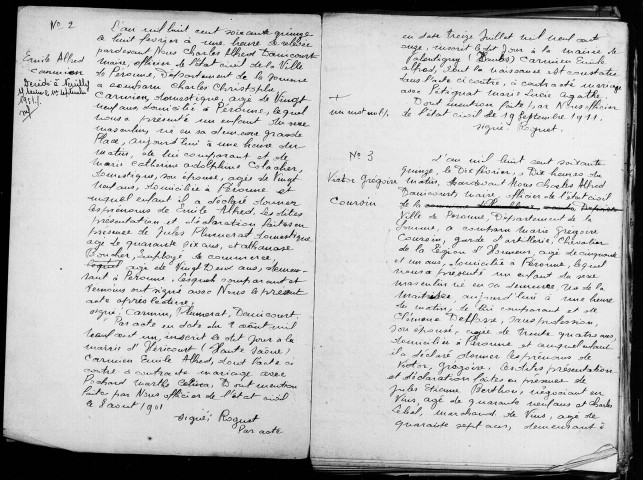 No 2
Emile Alfred
Carmien
Décédé à Neuilly
L'an mil huit cent soixante quinze
le huit février à une heure de relevée
pardevant Nous Charles Alfred Danicourt
maire, officier de l'état civil de la Ville
de Péronne, Département de la Somme
a comparu Charles Christophe
Carmien, domestique, âgé de Vingt
neuf ans domicilié à Péronne, lequel
nous a présenté un enfant du sexe
masculin, né en sa demeure grande
Place, aujourd'hui à une heure du
matin, de lui comparant et de
Marie Catherine Adolphine
domestique, son épouse, âgée de Vingt
neuf ans, domiciliée à Péronne et
auquel enfant il a déclaré donner
les prénoms de Emile Alfred. Les dites
présentation et déclaration faites en
présence de Jules domestique
âgé de quarante six ans, et Athanase
Boucher, employé de commerce,
âgé de Vingt Deux ans, demeu-
rant à Péronne, lesquels comparant et
témoins ont signé avec Nous le présent
acte après lecture,
signé: Carmien, Danicourt.
Par acte en date du 2 août mil
neuf cent un, inscrit le dit jour à la
mairie d'Héricourt (Haute Saône)
Carmien Emile Alfred, dont l'acte ci
contre a contracté mariage avec
Pochard Marthe Dont mention
faite par Nous officier de l'état civil
le 8 août 1901
signé: Roguet
Par acte
en date treize Juillet mil neuf cent
onze, inscrit le dit jour à la mairie de
Valentigney (Doubs) Carmien Emile
Alfred, dont la naissance est constatée
dans l'acte ci contre, a contracté mariage
avec Petignat Marie Lucie Agathe
Dont mention faite par Nous officier
de l'état civil le 19 septembre 1911.
signé: Roguet.
+
un mot nul.
No 3
Victor Grégoire
Coursin
L'an mil huit cent soixante
quinze, le Dix février, à Dix heures du
matin, pardevant Nous Charles Alfred
Danicourt, maire, officier de l'état civil
de la
Ville de Péronne, Département de la
Somme, a comparu Marie Grégoire
Coursin, garde d'artillerie, Chevalier
de la Légion d'Honneur, âgé de cinquante
et un ans, domicilié à Péronne, lequel
nous a présenté un enfant du sexe
masculin né en sa demeure rue de la
aujourd'hui à une heure
du matin, de lui comparant et de
Clémence sans profession,
son épouse, âgée de trente quatre ans,
domiciliée à Péronne et auquel enfant
il a déclaré donner les prénoms de
Victor, Grégoire, Les dites présentation
et déclaration faites en présence de
Jules Etienne Berthon, négociant en
Vins, âgé de quarante neuf ans et Charles
Lebel, marchand de Vins, âgé de
quarante sept ans, demeurant à